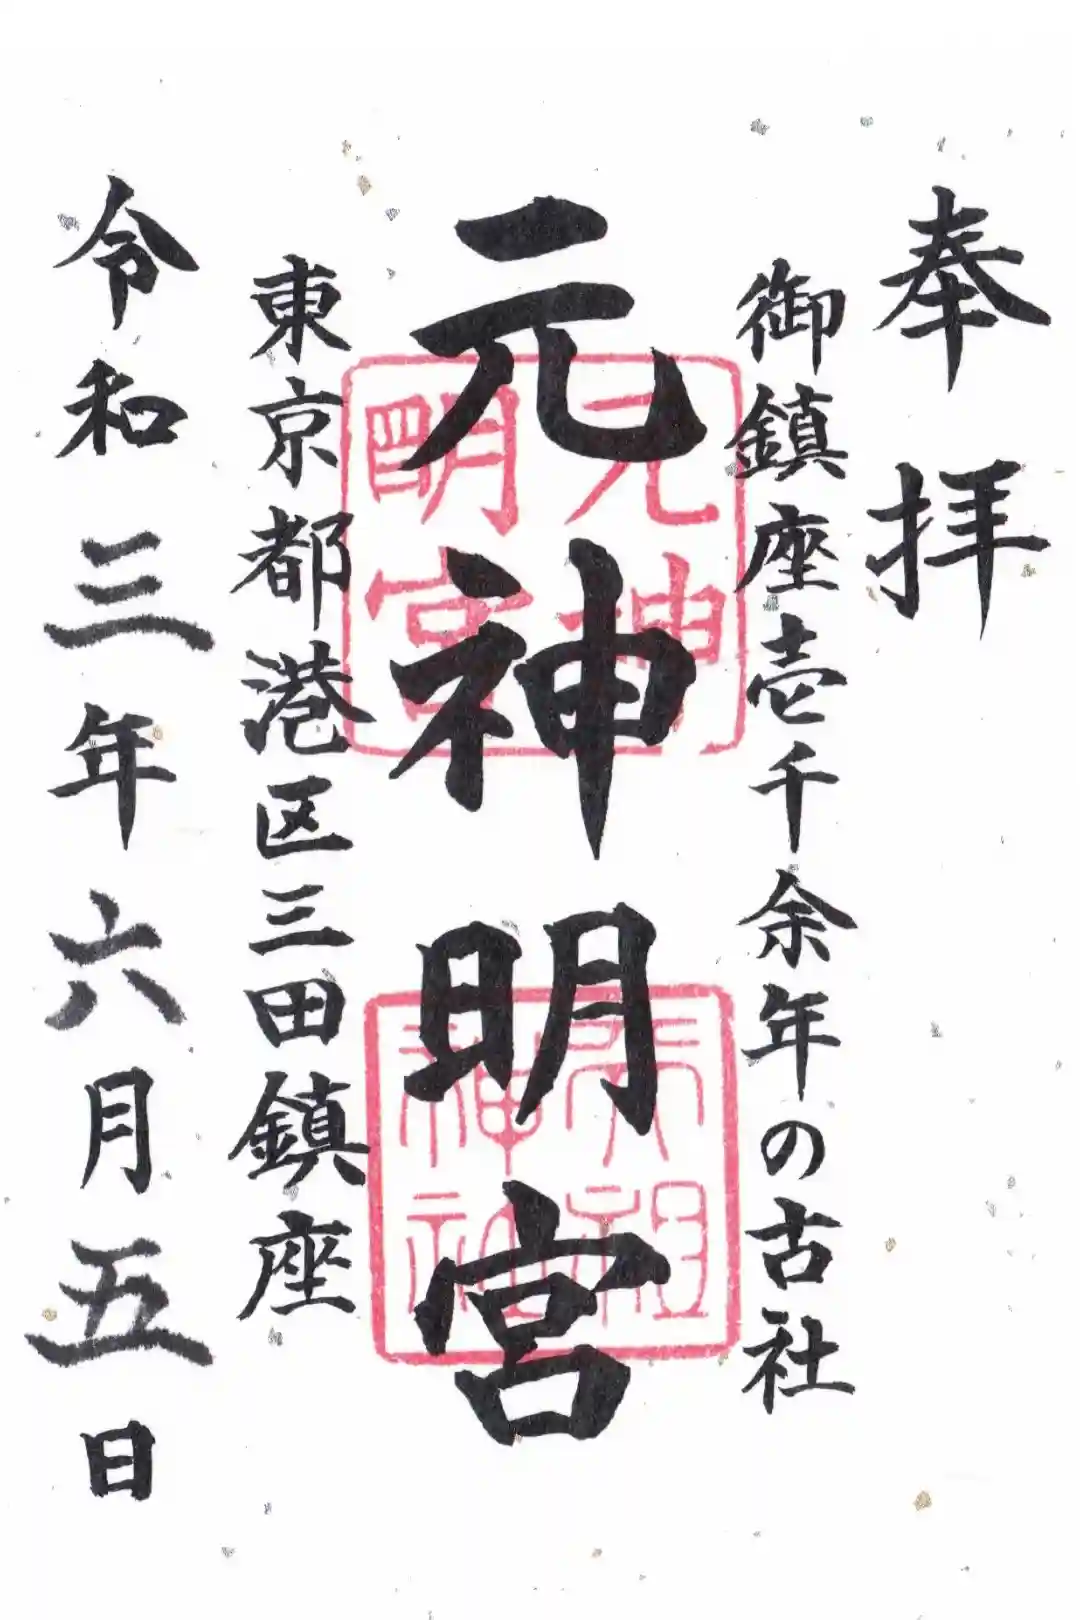 奉拝
御鎮座壱千余年の古社
元神明宮
元神明宮
天祖神社
東京都港区三田鎮座
令和三年六月五日